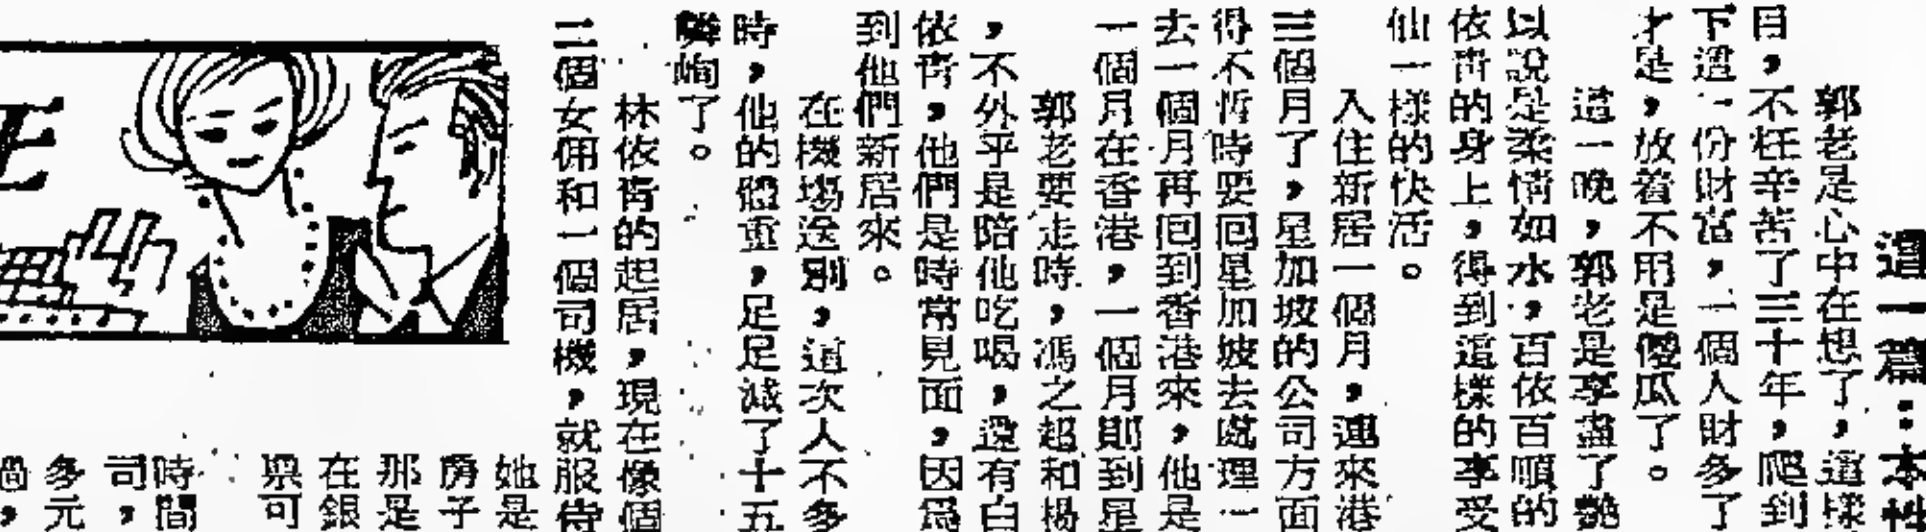 這一篇：本性
郭老是心中在想了，這樣
目，不枉辛苦了三十年，爬到
下這一份財富，一個人財多了
才是，放着不用是傻瓜了。
這一晚，郭老是享盡了艷
以說是柔情如水，百依百順的
依青的身上，得到這樣的享受
仙一樣的快活。
入住新居一個月，連來港
三個月了，星加坡的公司方面
得不暫時要回星加坡去處理一
去一個月再回到香港來，他是
一個月在香港，一個月則到星
郭老要走時，馮之超和楊
，不外乎是陪他吃喝，還有白
依青，他們是時常見面，因爲
到他們新居來。
在機塲送別，這次人不多
時，他的體重，足足減了十五
嶙峋了。
林依青的起居，現在像個
二個女佣和一個司機，就服侍
她是
房子
那是
在銀
票可
時間
司，
多元
過，
E